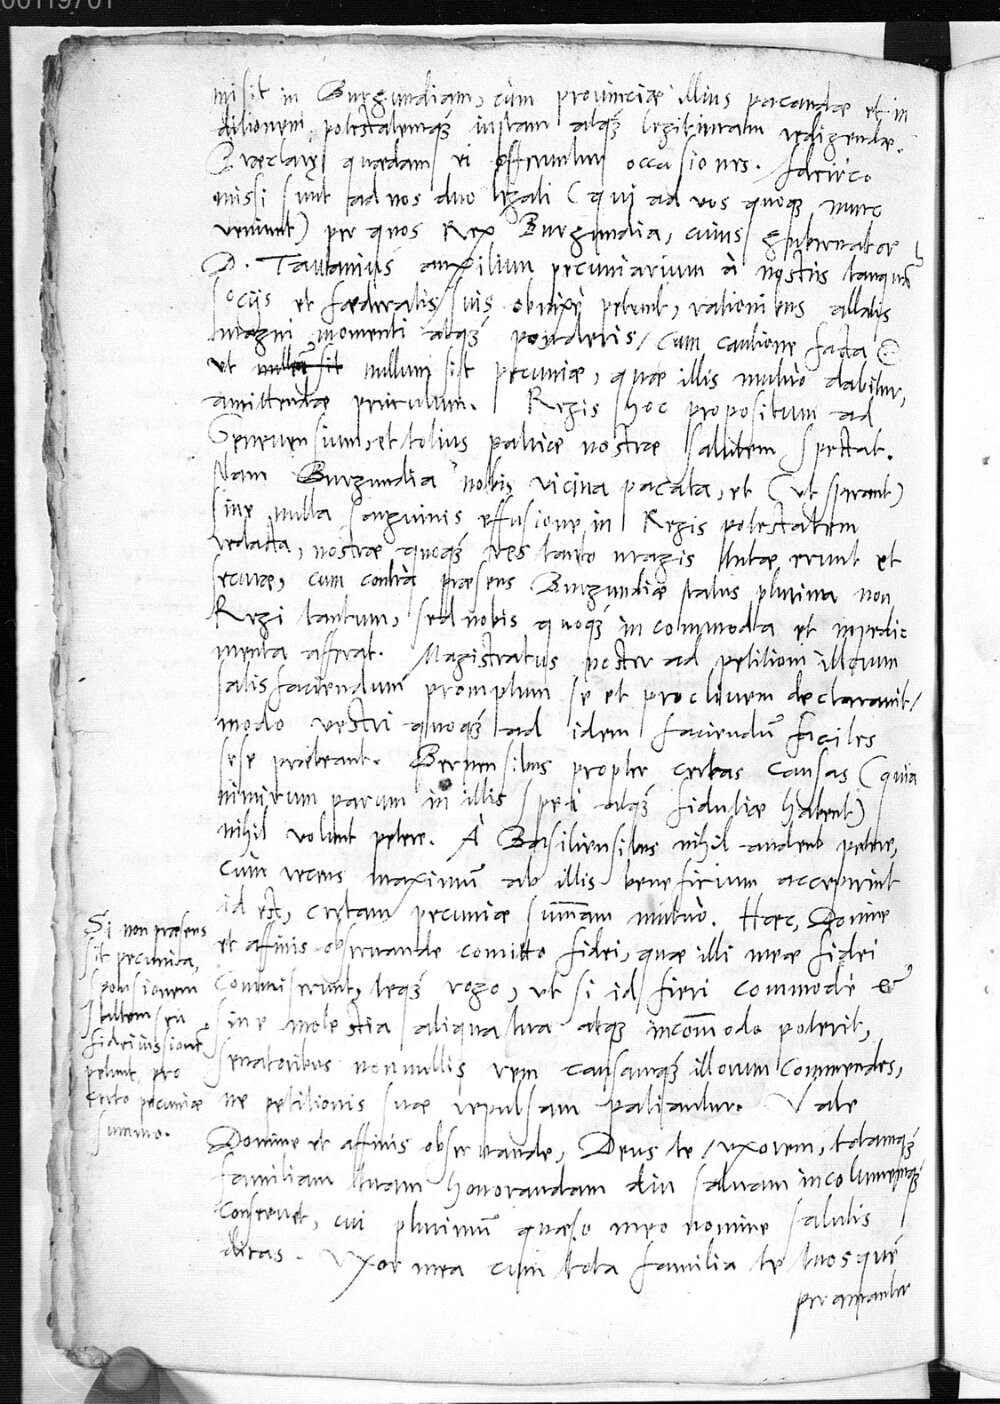 00119701
misit in Burgundiam, cùm prouinciæ illius pacandæ et in
ditionem, potestatemq́ꝫ iustam atq́ꝫ legitimam redigendæ.
Præclaræ quædam ei offeruntur occasiones. Idcirco
missi sunt ad nos duo legati (qui ad vos quoqꝫ nunc
veniunt) per quos Rex Burgundia, cuius gubernator
D. Tauanius auxilium pecuniarium à nostris tanquã
socijs et fæderatis suis obnixè petunt, rationibus allatis
magni momenti atq́ꝫ ponderis, cum cautione facta
ut nullum sit pecuniæ, quæ illis mutuò dabitur,
amittendæ periculum. Regis hoc propositum ad
Geneuensium, et totius patriæ nostræ salutem spectat.
Nam Burgundia nobis vicina pacata, et (ut sperant)
sine nulla sanguinis effusione in Regis potestatem
redacta, nostræ quoq́ꝫ res tanto magis tutæ erunt et
securæ, cum contrà præsens Burgundiæ status plurima non
Regi tantum, sed nobis quoq́ꝫ incommoda et impedi⸗
menta afferat. Magistratus noster ad petitioni illorum
satisfaciendum promptum se et procliuem declarauit,
modo vestri quoq́ꝫ ad idem faciendũ faciles
sese præbeant. Bernensibus propter certas causas (quia
nimirum parum in illis spei atq́ꝫ fiduciæ habent)
nihil volunt petere. À Basiliensibus nihil audent petere,
cùm recens maximũ ab illis beneficium acceperint
id est, certam pecuniæ sum̃am mutuò. Hæc, Domine
et affinis obseruande comitto fidei, quæ illi meæ fidei
Commiserunt, teq́ꝫ rogo, ut si id fieri commodè et
sine molestia aliqua tua atqꝫ incom̃odo poterit,
senatoribus nonnullis rem causamq́ꝫ illorum Commendes,
ne petitionis suæ repulsam patiantur. Vale
Domine et affinis obseruande, Deus te, uxorem, totamq́ꝫ
familiam tuam honorandam diu saluam incolumemq́ꝫ
Conseruet, cui plurimũ quæso meo nomine salutis
dicas. Vxor mea cum tota familia te tuosqué
peramanter
Si non præsens
sit pecunia,
sponsionem
saltem seu
fideiussionẽ
petunt, pro
certo pecuniæ
summo.